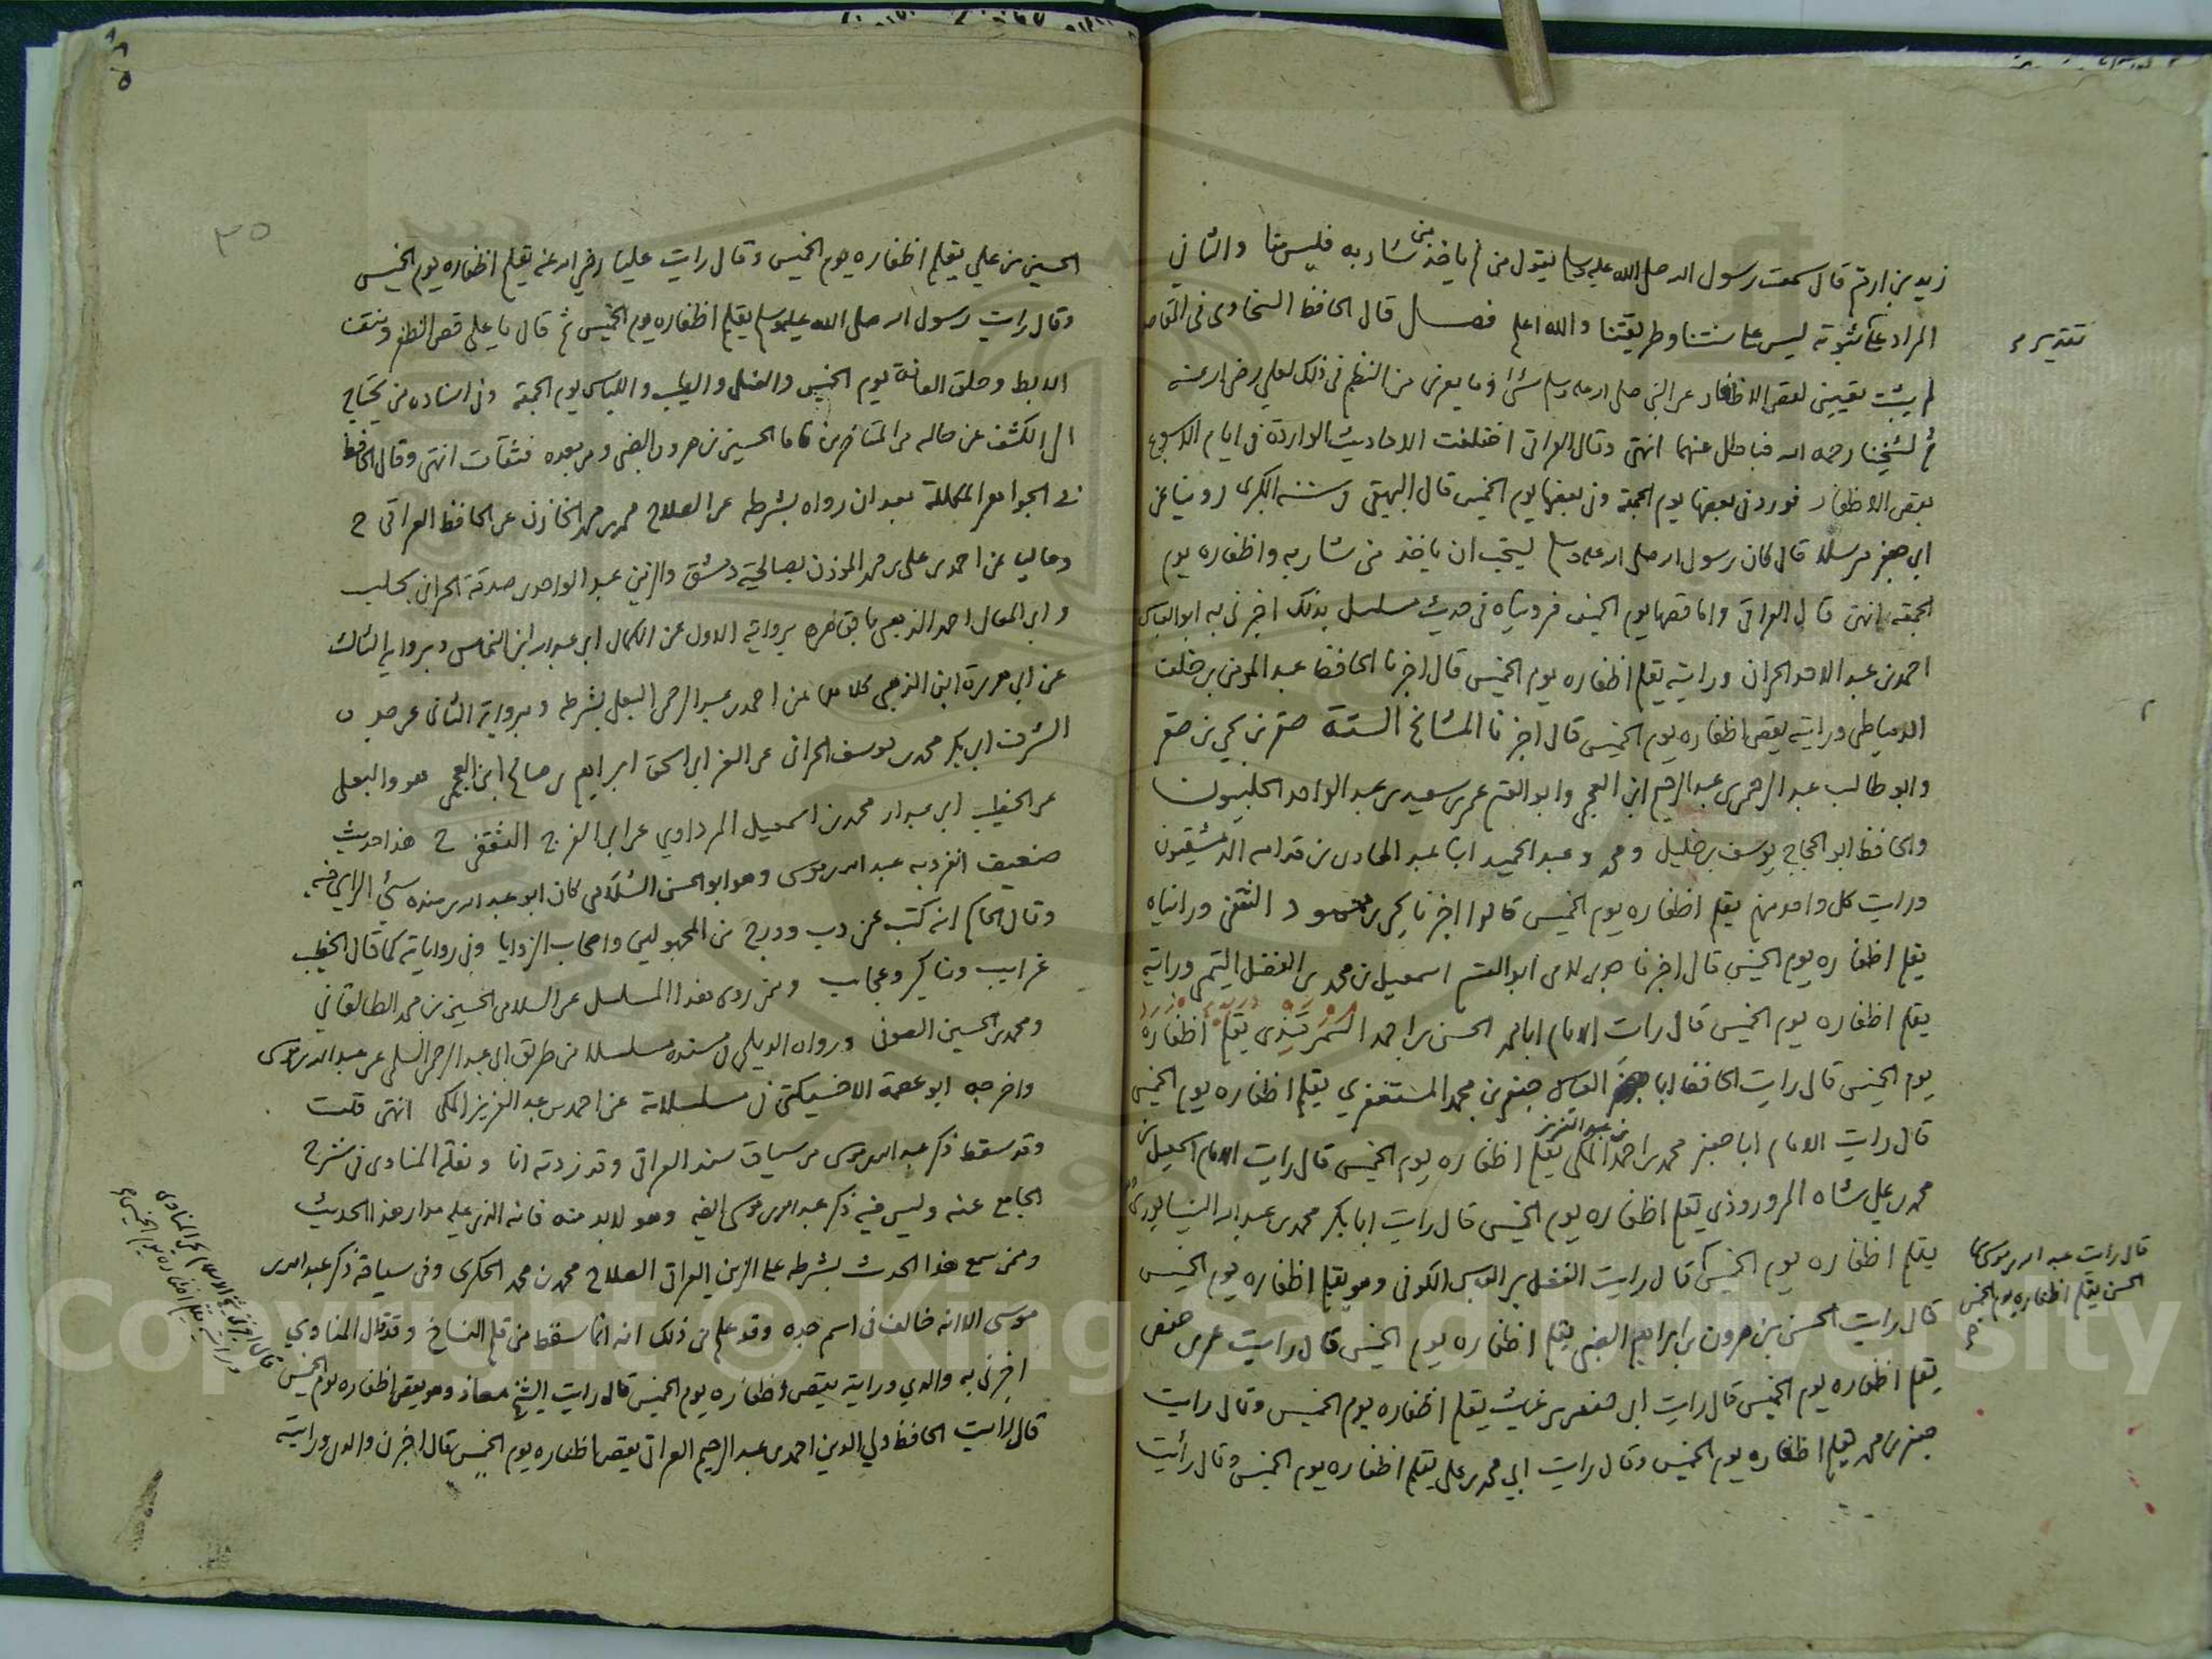 زيد بن ارقم قال سمعت رسول الله صلى الله عليه وسلم يقول من لم ياخذ من شاربه فليس منا والثاني
المراد على ثبوته ليس على سنتنا وطريقتنا والله اعلم فصل قال الحافظ السخاوى فى المقاصد
تقدير م
لم يثبت تعيين لقص الاظفار عن النبي صلى الله عليه وسلم شئ وما يعزى من النظم فى ذلك لعلي رضى الله عنه
ثم لشيخنا رحمه الله فباطل عنهما انتهى وقال العراقى اختلفت الاحاديث الواردة فى ايام الاسبوع
بقص الاظفار فورد فى بعضها يوم الجمعة وفى بعضها يوم الخميس قال البيهقى فى سننه الكبرى روينا عن
ابى جعفر مرسلا قال كان رسول الله صلى الله عليه وسلم يستحب ان ياخذ من شاربه واظفاره يوم
الجمعة انتهى قال العراقى واما قصها يوم الخميس فرويناه فى حديث مسلسل بذلك اخبرنى به ابو العباس
احمد بن عبد الاحد الحرانى ورايته يقلم اظفاره يوم الخميس قال اخبرنا الحافظ عبد المومن بن خلف
الدمياطى ورايته يقص اظفاره يوم الخميس قال اخبرنا المشائخ الستة صقر بن يحيى بن صقر
وابو طالب عبد الرحمن بن عبد الرحيم ابن العجمى وابو القسم عمر بن سعيد بن عبد الواحد الحلبيون
والحافظ ابو الحجاج يوسف بن خليل ومحمد وعبد الحميد ابنا عبد الهادى بن قدامه الدمشقيون
ورايت كل واحد منهم يقلم اظفاره يوم الخميس قالوا اخبرنا يحيى بن محمود الثقفى ورايناه
يقلم اظفاره يوم الخميس قال اخبرنا جدى لامى ابو القسم اسمعيل بن محمد بن الفضل التيمى ورايته
يقلم اظفاره يوم الخميس قال رايت الامام ابا محمد الحسن بن احمد السمرقندى يقلم اظفاره
يوم الخميس قال رايت الحافظ ابا العباس جعفر بن محمد المستغفري يقلم اظفاره يوم الخميس
قال رايت الامام ابا جعفر محمد بن احمد بن عبد العزيز المكى يقلم اظفاره يوم الخميس قال رايت الامام اسمعيل بن
محمد بن علي شاه المروروذي يقلم اظفاره يوم الخميس قال رايت ابا بكر محمد بن عبد الله النيسابورى
يقلم اظفاره يوم الخميس قال رايت الفضل بن العباس الكوفى وهو يقلم اظفاره يوم الخميس
قال رايت عبد الله بن موسى
الحسن يقلم اظفاره يوم الخميس
قال رايت الحسين بن هرون بن ابراهيم الضبى يقلم اظفاره يوم الخميس قال رايت عمر بن حفص
يقلم اظفاره يوم الخميس قال رايت ابى حفص بن غياث يقلم اظفاره يوم الخميس وقال رايت
جعفر بن محمد يقلم اظفاره يوم الخميس وقال رايت ابي محمد بن على يقلم اظفاره يوم الخميس وقال رأيت
٣٥
الحسين بن علي يقلم اظفاره يوم الخميس وقال رايت عليا رضي الله عنه يقلم اظفاره يوم الخميس
وقال رايت رسول الله صلى الله عليه وسلم يقلم اظفاره يوم الخميس ثم قال يا على قص الظفر ونتف
الابط وحلق العانة يوم الخميس والغسل والطيب واللباس يوم الجمعة وفى اسناده من يحتاج
الى الكشف عن حاله من المتاخرين فاما الحسين بن هرون الضبى ومن بعده فثقات انتهى وقال الحافظ
فى الجواهر المكللة بعد ان رواه بشرطه عن الصلاح محمد بن محمد الخازن عن الحافظ العراقى ح
وعاليا عن احمد بن على بن محمد المؤذن بصالحية دمشق والزين عبد الواحد بن صدقة الحرانى بحلب
وابى المعالى احمد الذهبى برواية الاول عن الكمال ابى عبد الله ابن النحاس وبرواية الثالث
عن ابى هريرة ابن الذهبى كلاهما عن احمد بن عبد الرحمن البعلى بشرطه وبرواية الثانى عن
الشرف ابى بكر محمد بن يوسف الحرانى عن العز ابى اسحق ابراهيم بن صالح ابن العجمى هو والبعلى
عن الخطيب ابى عبد الله محمد بن اسمعيل المرداوي عن ابى الفرج الثقفى ح هذا حديث
ضعيف انفرد به عبد الله بن موسى وهو ابو الحسن السلامى كان ابو عبد الله بن منده سئ الراى فيه
وقال الحاكم انه كتب عن دب ودرج من المجهولين واصحاب الزوايا وفى رواياته كما قال الخطيب
غرايب ومناكير وعجايب وممن روى هذا المسلسل عن السلامى الحسين بن محمد الطالقاني
ومحمد بن الحسين الصوفى ورواه الديلمي فى مسنده مسلسلا من طريق ابى عبد الرحمن السلمى عن عبد الله بن موسى
واخرجه ابو عصمة الاخسيكتى فى مسلسلاته عن احمد بن عبد العزيز المكى انتهى قلت
وقد سقط ذكر عبد الله بن موسى من سياق سند العراقى وقد زدته انا ونقله المناوى فى شرح
الجامع عنه وليس فيه ذكر عبد الله بن موسى ايضا وهو لابد منه فانه الذى عليه مدار هذا الحديث
وممن سمع هذا الحديث بشرطه على الزين العراقى الصلاح محمد بن محمد الحكرى وفى سياقه ذكر عبد الله بن
موسى الا انه خالف فى اسم جده وقد علم من ذلك انه انما سقط من قلم النساخ وقد قال المناوي
اخبرنى به والدي ورايته يقص اظفاره يوم الخميس قال رايت الشيخ معاذ وهو يقص اظفاره يوم الخميس
قال اخبرنى شيخ الاسلام يحيى المناوى
ورايته يقلم اظفاره يوم الخميس
قال رايت الحافظ ولي الدين احمد بن عبد الرحيم العراقى يقص اظفاره يوم الخميس قال اخبرنى والدى ورايته
Copyright © King Saud University